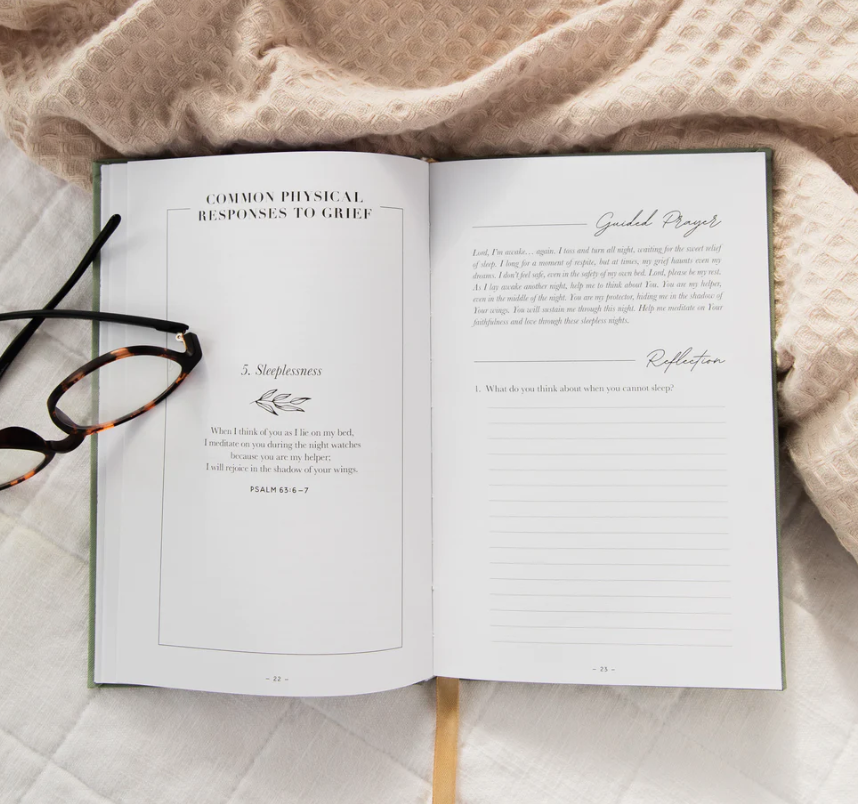 COMMON PHYSICAL
RESPONSES TO GRIEF
5. Sleeplessness
When I think of you as I lie on my bed,
I meditate on you during the night watches
because you are my helper;
I will rejoice in the shadow of your wings.
PSALM 63:6–7
– 22 –
Guided Prayer
Lord, I'm awake... again. I toss and turn all night, waiting for the sweet relief
of sleep. I long for a moment of respite, but at times, my grief haunts even my
dreams. I don't feel safe, even in the safety of my own bed. Lord, please be my rest.
As I lay awake another night, help me to think about You. You are my helper,
even in the middle of the night. You are my protector, hiding me in the shadow of
Your wings. You will sustain me through this night. Help me meditate on Your
faithfulness and love through these sleepless nights.
Reflection
1. What do you think about when you cannot sleep?
– 23 –